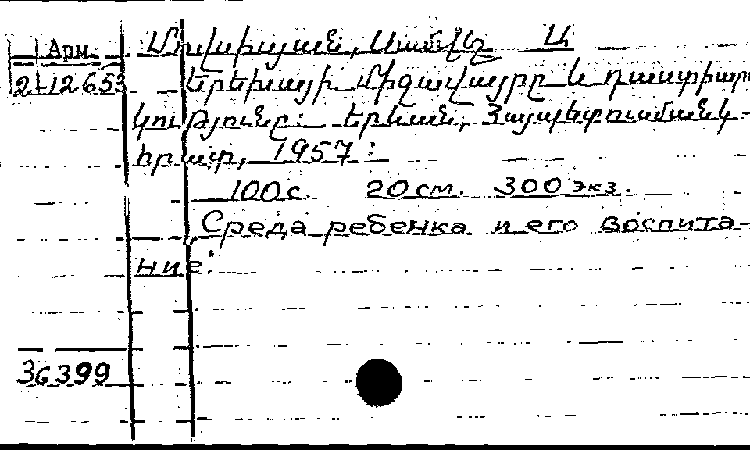 Арм.
2-12653
Մովսիսյան, Սամվել Ա
Երեխայի միջավայրը և դաստիարա-
կությունը: Երևան, Հայպետուսմանկ-
հրատ, 1957:
100с. 20см. 300экз.
„Среда ребенка и его воспита-
ние".
36399